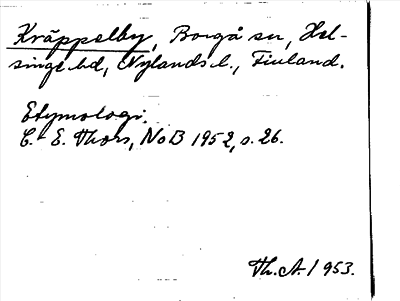 Kräppelby, Borgå sn, Hel-
singe hd, Nylands l., Finland.
Etymologi.
C.-E. Thors, NoB 1952, s. 26.
Th. A. 1953.